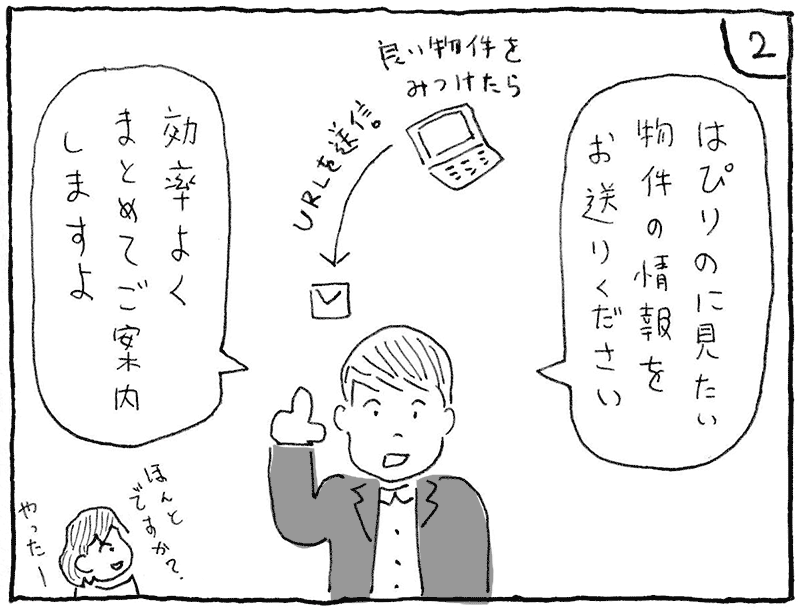 2
良い物件を
みつけたら
URLを送信。
はぴりのに見たい
物件の情報を
お送りください
効率よく
まとめてご案内
しますよ
ほんと
ですか?
やったー